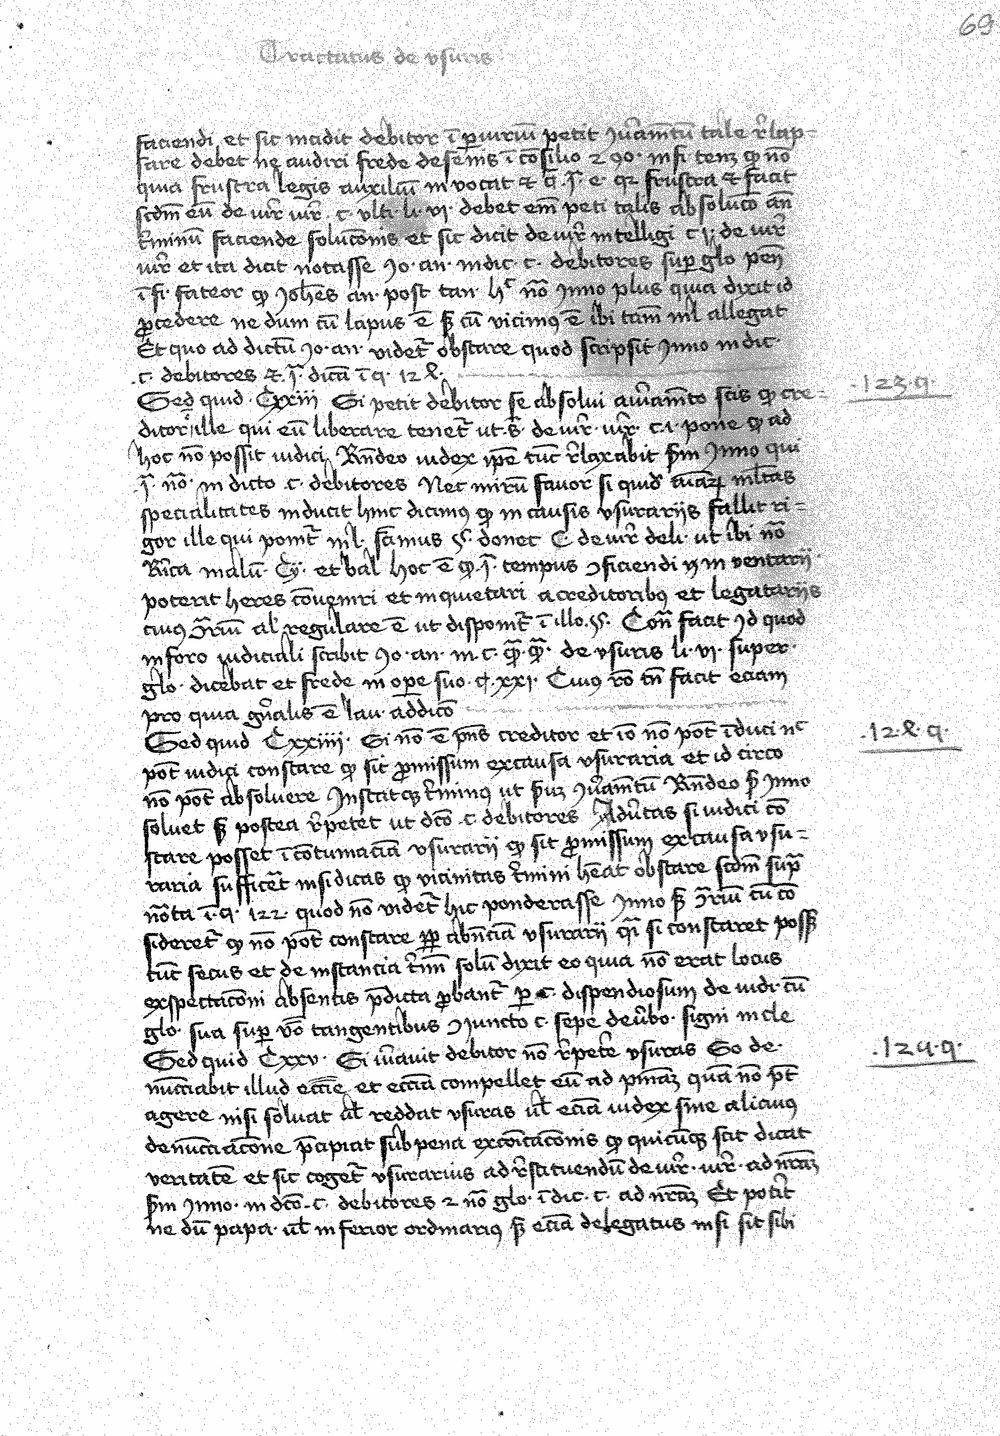 69
Tractatus de vsuris
faciendi et sic incidit debitor ī ꝑiuriū petit iur̄amt̄ū tale r̄lap=
sare debet ne audiri frede desenis ī cōsilio 2 90· in fi tenz qꝫ nō
quia frustra legis auxiliū in vocat et q̄ ī e· qꝛ frustra et facit
scdm eū de iur iur · c · vlti · li · vi · debet em̄ peti talis absolucō an̄
t̄minū faciende solucōnis et sic dicit de iur̄ intelligi c i de iur̄
iur̄ et ita dicit notasse Jo · an · in dic · c · debitores suꝑ glo pen̄
ī fi · fateor qꝫ Joh̄es an · post tan · hͨ nō Inno plus quia dixit id
ꝓcedere ne dum cū lapsus ē sꝫ cū vicinꝰ ē ibi tam̄ nl̄ allegat
Et quo ad dictū Jo · an · videt̄ obstare quod scripsit Inno in dic ·
· c · debitores et ī dicā ī q · 12 l ·
Sed quid · Cxxiii Si petit debitor se absolui a iur̄amt̄o scis qꝫ cre=
· 123 · q ·
ditor ille qui eū liberare tenet̄ ut · s̄ · de iur̄ · iur̄ · c · i · pone qꝫ ad
hoc nō possit iudici Rn̄deo iudex ip̄e tūc r̄laxabit sm̄ Inno qui
· ī · nō · in dicto · c · debitores Nec mirū fauor si quid aīaꝝ ml̄tas
specialitates inducit hinc dicimus qꝫ in causis vsurarijs fallit ri=
gor ille qui ponit̄ in l · sām̄us §· donec C de iur̄ deli · ut ibi nō
Rica malū · Cy · et bal hoc ē qꝫ ī tempus ɔficiendi in ventarij
poterit heres cōuenīri et inquietari a creditoribꝰ et legatarijs
cuiꝰ ɔr̄iū al̄ regulare ē ut disponit̄ ī illo · §· Con̄ facit id quod
in foro iudiciali scribit Jo · an · in · c · de vsuris li · vi · super ·
glo · dicebat et frede in oꝑe suo · q · xxi · Cuiꝰ rō tn̄ facit eciam
pro quia gn̄alis ē lau · addicō
Sed quid Cxxiiii · Si nō ē pn̄s creditor et iō nō pot̄ īduci nͨ
· 12 · l · q ·
pot̄ iudici constare qꝫ sit ꝓmissum ex causa vsuraria et id circo
nō pot̄ absoluere Instat qꝫ t̄minꝰ ut iur̄amt̄ū Rn̄deo sꝫ Inno
soluet sꝫ postea r̄petet ut dc̄o · c · debitores Adūtas si iudici cō
stare posset ī cōtumaciā vsurarij qꝫ sit ꝓmissum ex causa vsu=
raria sufficēt nisi dicas qꝫ vicinitas t̄mini hēat obstare scdm sup̄
nōta ī · q · 122 · quod nō videt̄ hic ponderasse Inno sꝫ ɔr̄iū cū cō
sideret̄ qꝫ nō pot̄ constare ꝓp̄ abn̄ciā vsurarij q̄ si constaret possꝫ
tūc secus et de instancia t̄mi solū dixit eo quia nō erat locus
exspectacōni absentis p̄dicta ꝓbant̄ ꝑ · c · dispendiosum de iudi · cū
glo · sua suꝑ v̄o tangentibus ɔiuncto c · sepe de ūbo · signi in cle
Sed quid Cxxv · Si iurauit debitor nō r̄pet̄e vsuras So de ·
· 124 · q ·
nunciabit illud ecc̄ie et ecc̄iā compellet eū ad pn̄iaꝫ quā nō pt̄
agere nisi soluat ul̄ reddat vsuras ul̄ eciā iudex sine alicuiꝰ
denunciacōne p̄cipiat sub pena excōicacōnis qꝫ quicūqꝫ scit dicat
veritatē et sic coget̄ vsurarius ad r̄stituendū de iur̄ · iur̄ · ad nr̄aꝫ
sm̄ Inno · in dc̄o · c · debitores 2 nō glo · ī dic · c · ad nr̄aꝫ Et potit̄
ne dū papa · ul̄ inferior ordinariꝰ sꝫ eciā delegatus nisi sit sibi